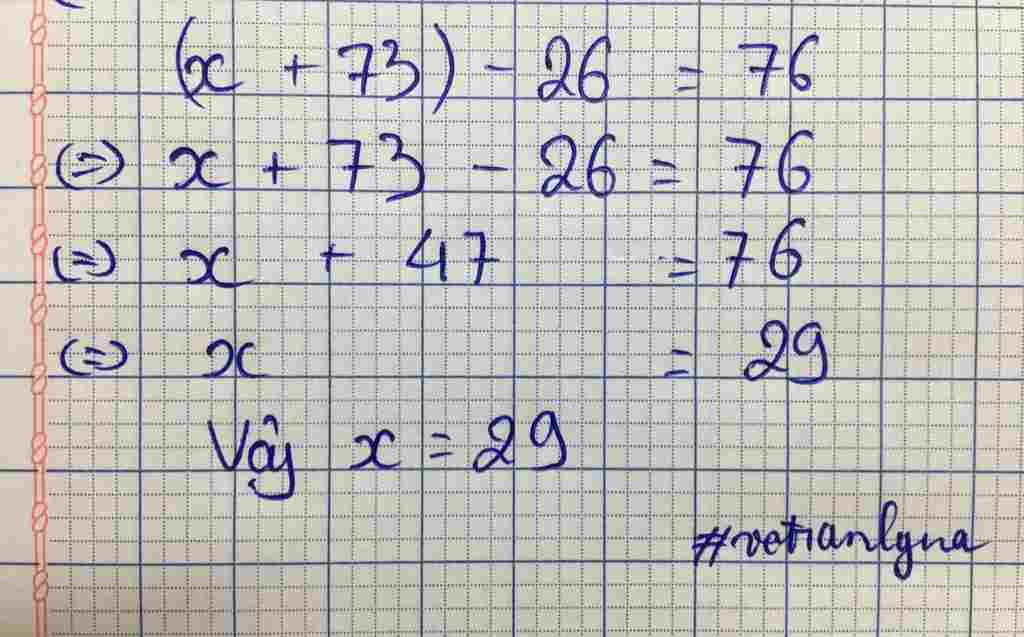 (x + 73) - 26 = 76
(=) x + 73 - 26 = 76
(=) x + 47 = 76
(=) x = 29
Vậy x = 29
#vetianlyna